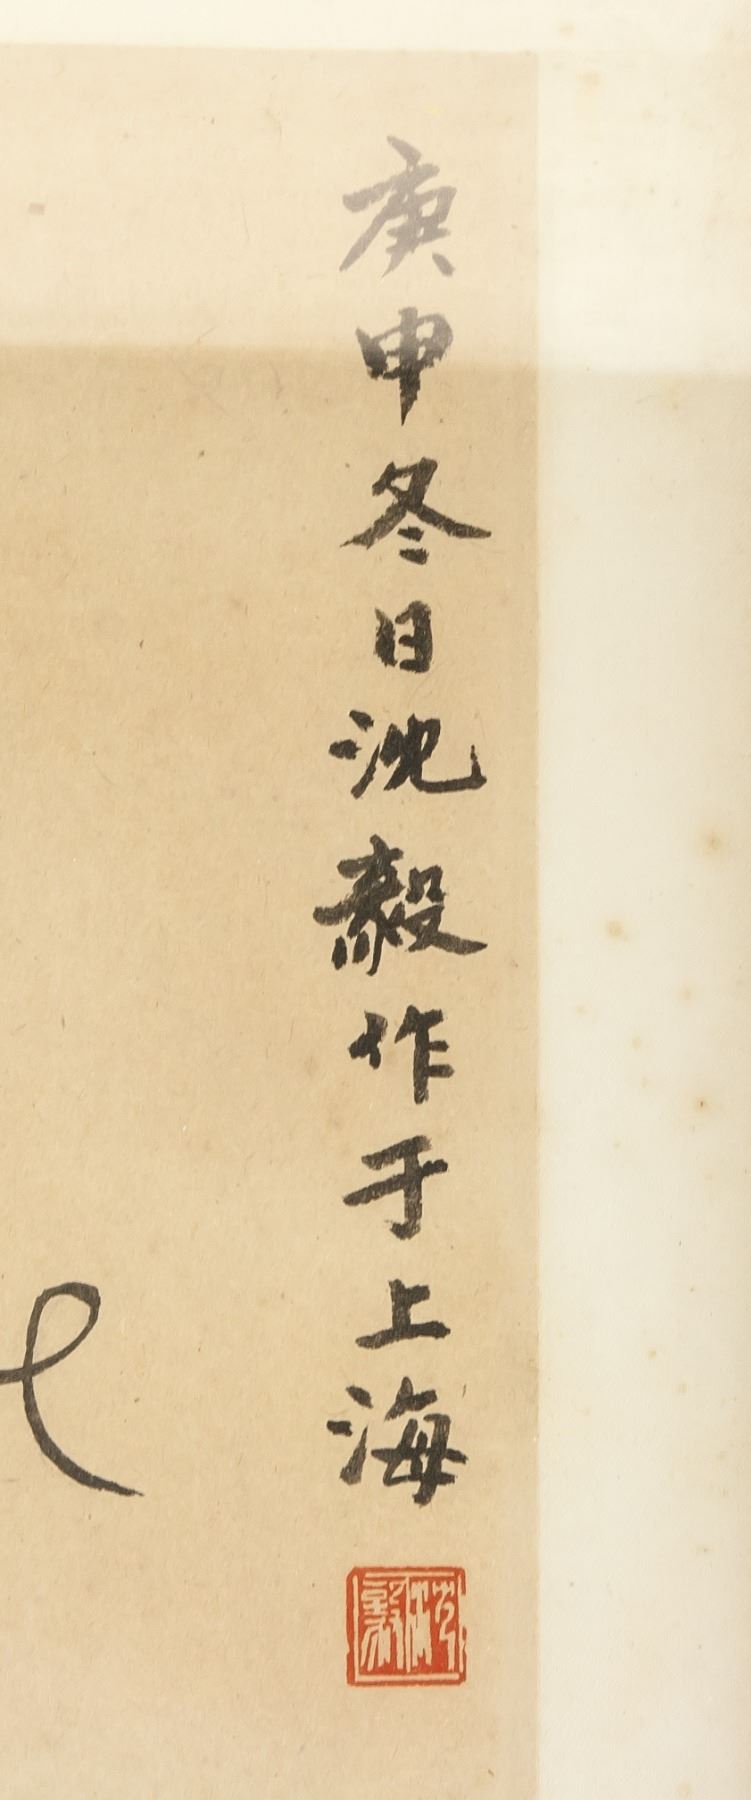 庚申冬日沈毅作于上海